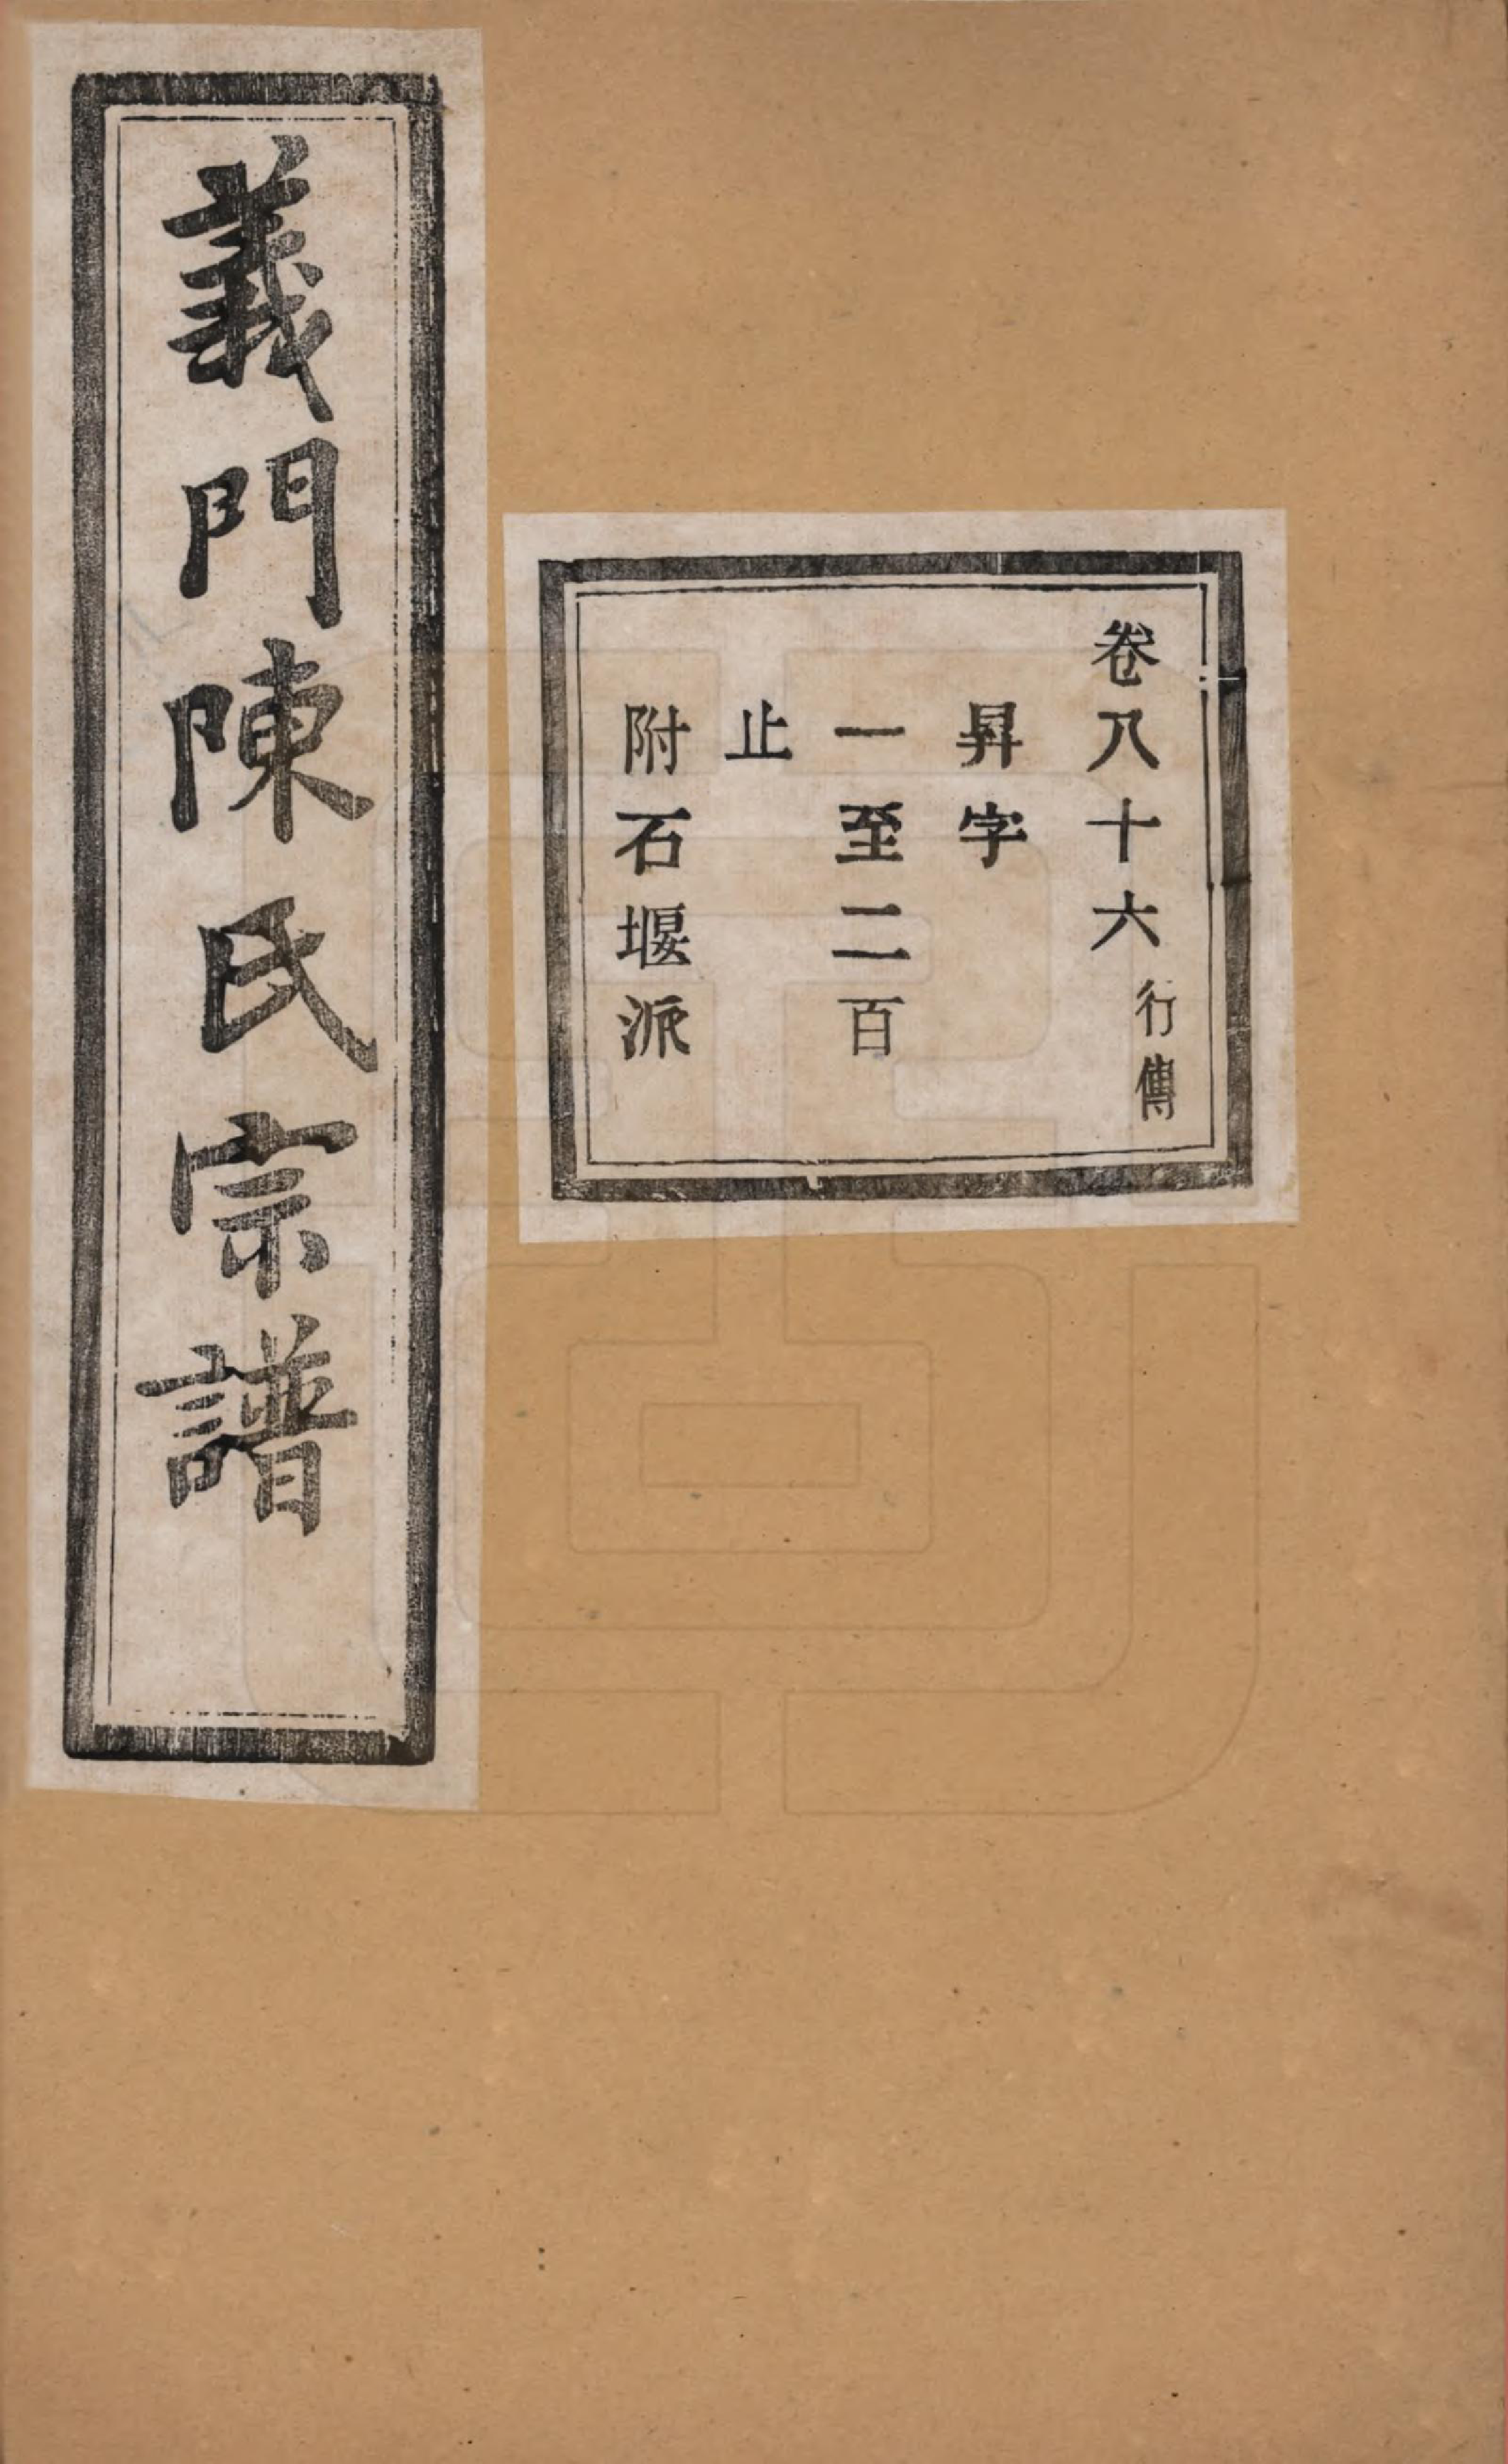 義門陳氏宗譜
卷八十六行傳
昇字
一至二百
止
附石堰派